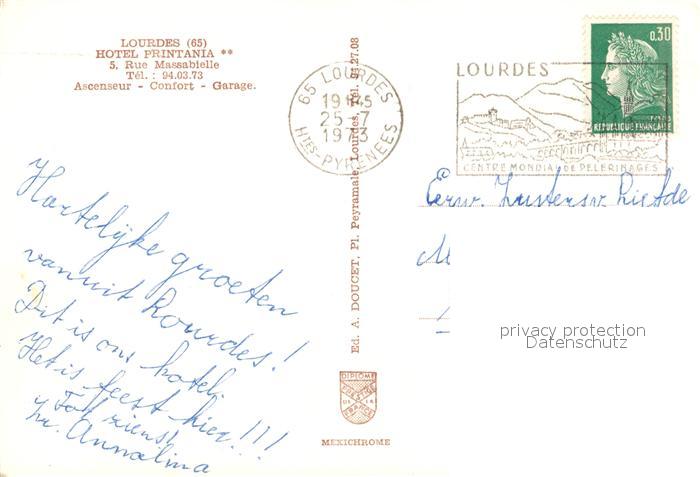 LOURDES (65)
HOTEL PRINTANIA **
5, Rue Massabielle
Tél. : 94.03.73
Ascenseur - Confort - Garage.
65 LOURDES
19H45
25-7
1973
HTES-PYRENEES
LOURDES
CENTRE MONDIAL DE PELERINAGES
0,30
REPUBLIQUE FRANÇAISE
Ed. A. DOUCET, Pl. Peyramale, Lourdes, Tél. 94.27.08
Hartelijke groeten
vanuit Lourdes!
Dit is ons hotel.
Het is feest hier!!!
Zr. Annalina
Eerw. Zusters v. Liefde
M
DIPLOME
PRESTIGE
DE LA
FRANCE
MEXICHROME
privacy protection
Datenschutz